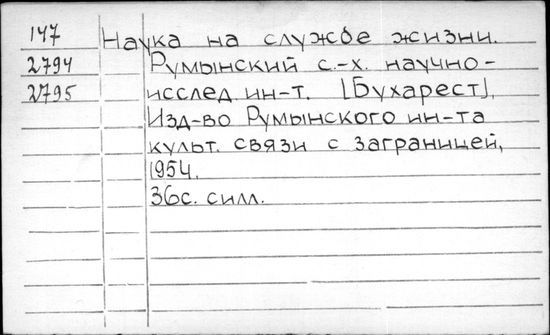 147 Наука на службе жизни.
2794 Румынский с.-х. научно-
2795 исслед. ин-т. [Бухарест],
Изд-во Румынского ин-та
культ. связи с заграницей,
1954.
36с. силл.